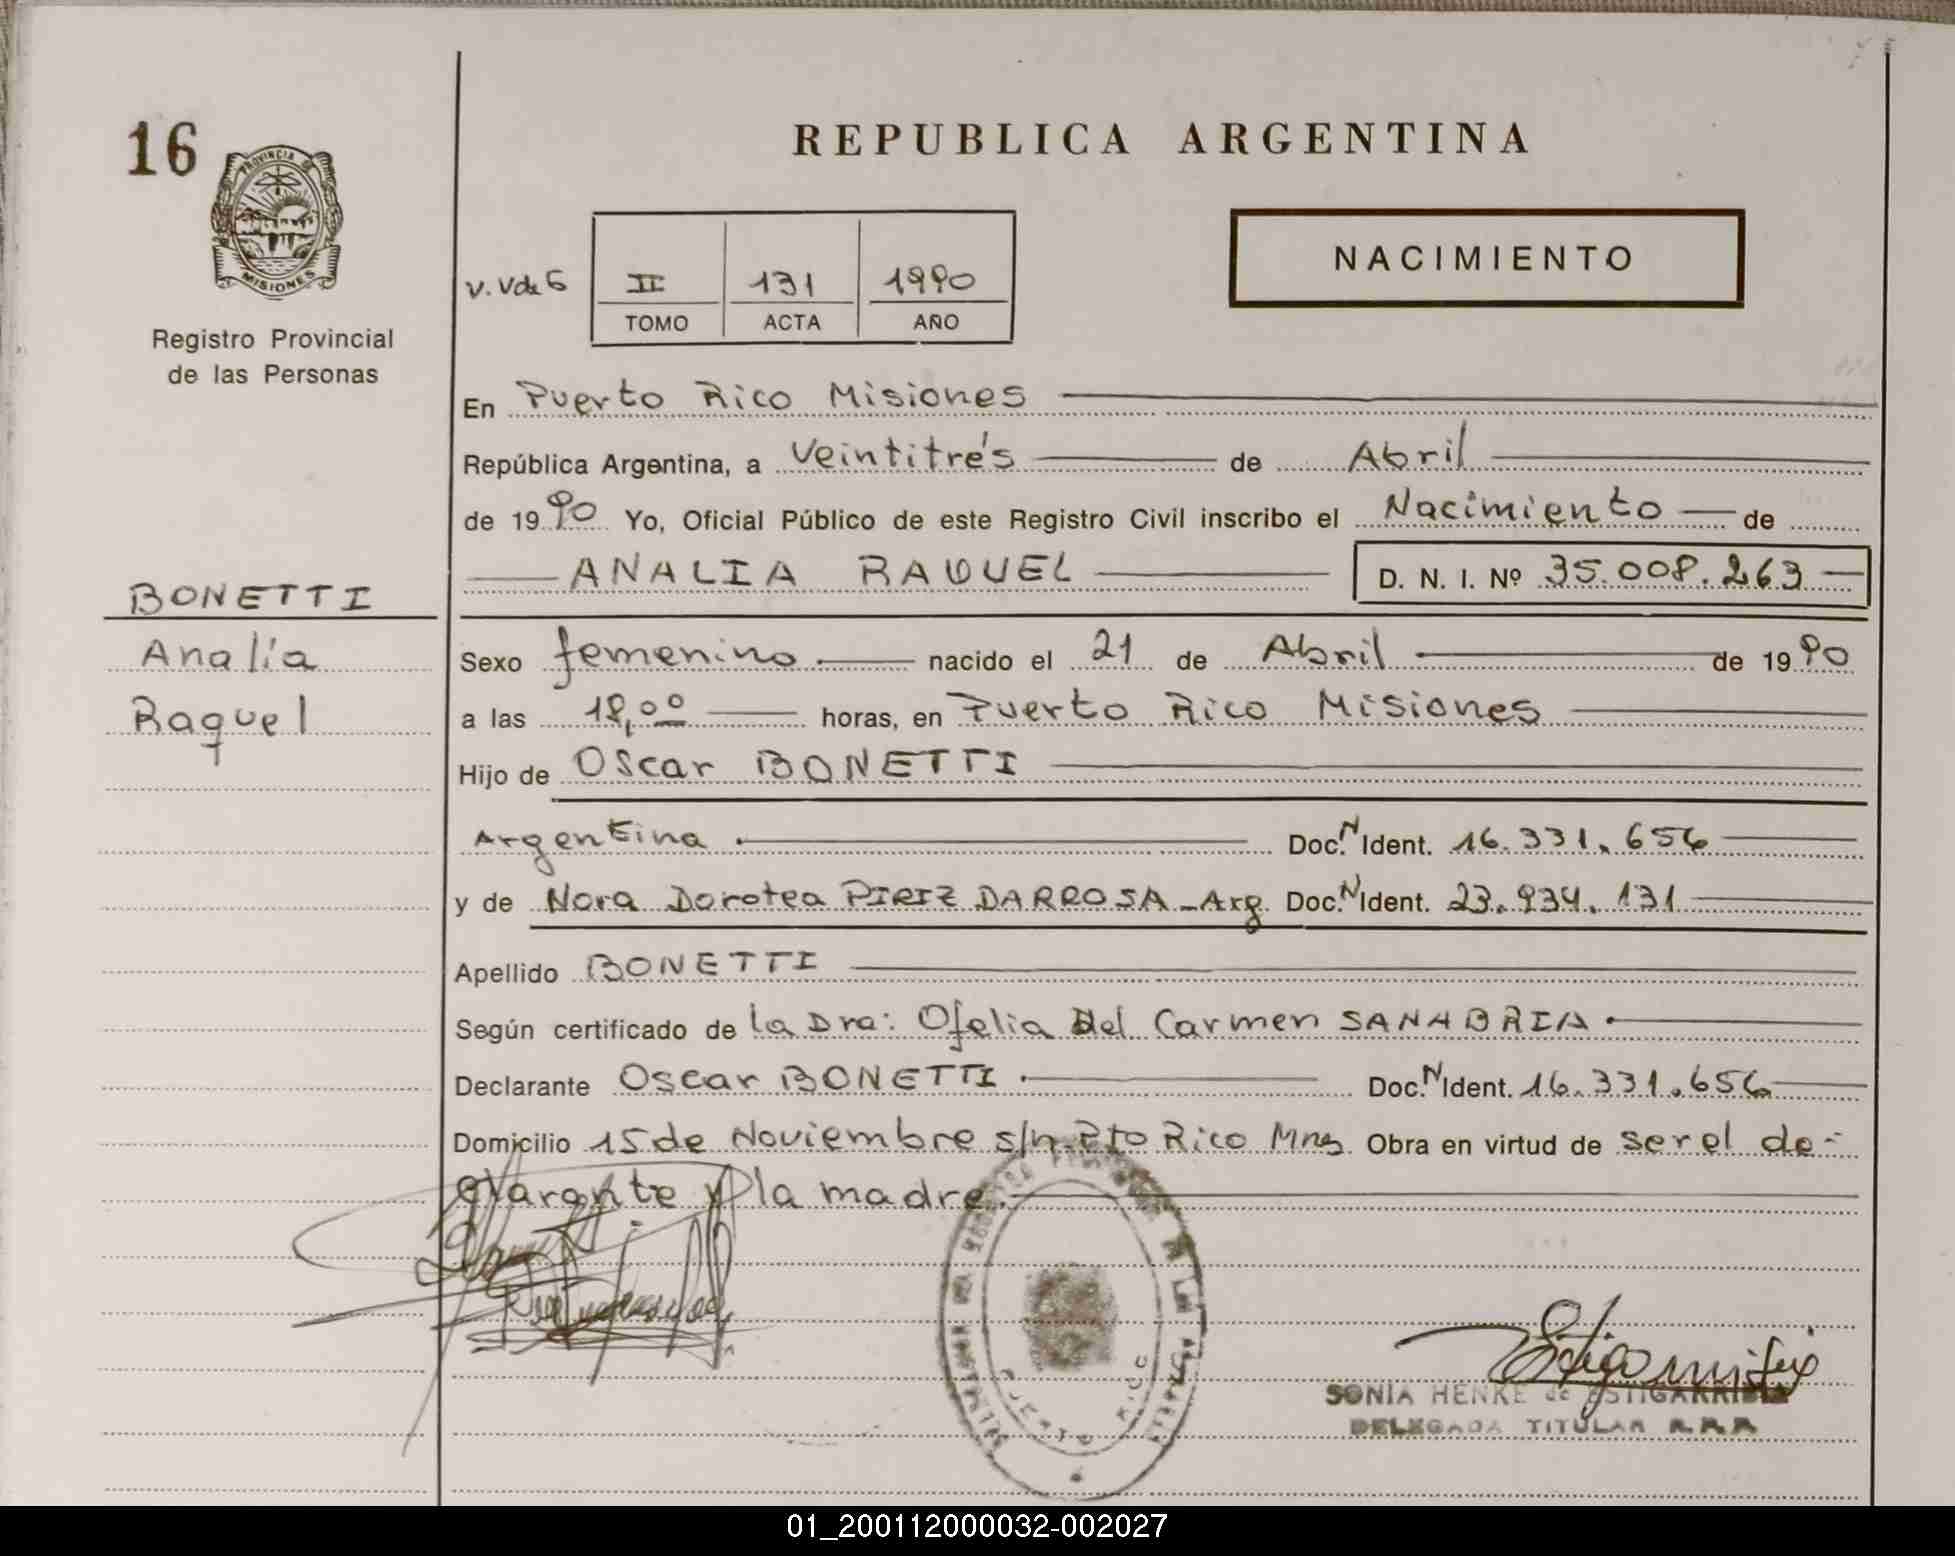 16
PROVINCIA DE
MISIONES
Registro Provincial
de las Personas
REPUBLICA ARGENTINA
NACIMIENTO
II 131 1990
TOMO ACTA AÑO
En Puerto Rico Misiones
República Argentina, a Veintitrés de Abril
de 1990 Yo, Oficial Público de este Registro Civil inscribo el Nacimiento de
ANALIA RAQUEL D. N. I. Nº 35.008.263
BONETTI
Analía
Raquel
Sexo femenino nacido el 21 de Abril de 1990
a las 18,00 horas, en Puerto Rico Misiones
Hijo de Oscar BONETTI
Argentina Doc. N Ident. 16.331.656
y de Nora Dorotea PIRIZ DARROSA - Arg. Doc. N Ident. 23.934.131
Apellido BONETTI
Según certificado de la Dra: Ofelia Del Carmen SANABRIA
Declarante Oscar BONETTI Doc. N Ident. 16.331.656
Domicilio 15 de Noviembre s/n. Pto Rico Mns Obra en virtud de ser el de-
clarante y la madre.
PUERTO RICO
SONIA HENKE de ESTIGARRIBIA
DELEGADA TITULAR R.P.P.
01_200112000032-002027